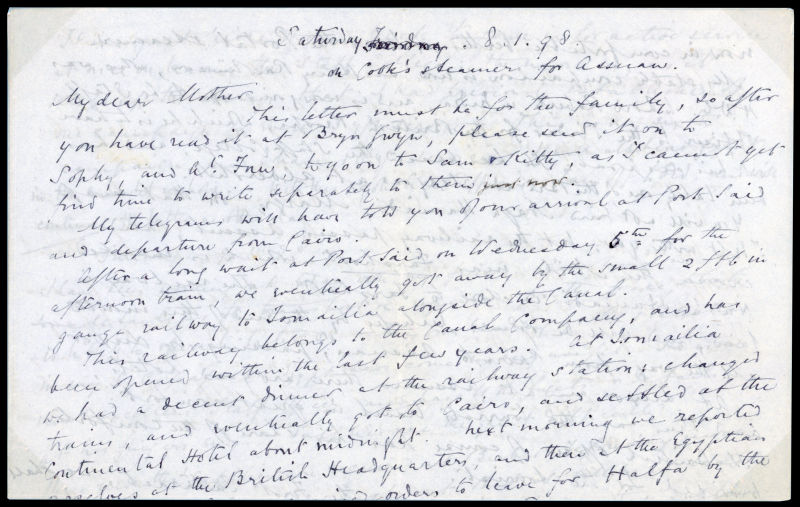 Saturday 8.1.98
on Cook's steamer for Assuan.
My dear Mother
This letter must be for the family, so after
you have read it at Bryn Gwyn, please send it on to
Sophy, and to go on to Sam & Kitty, as I cannot get
find time to write separately to them just now.
My telegrams will have told you of our arrival at Port Said
and departure from Cairo.
After a long wait at Port Said on Wednesday 5th for the
afternoon train, we eventually got away by the small 2 ft 6 in
gauge railway to Ismailia alongside the Canal.
This railway belongs to the Canal Company, and has
been opened within the last few years. At Ismailia
we had a decent dinner at the railway station; changed
trains, and eventually got to Cairo, and settled at the
Continental Hotel about midnight. Next morning we reported
ourselves at the British Headquarters, and there at the Egyptian
orders to leave for Halfa by the